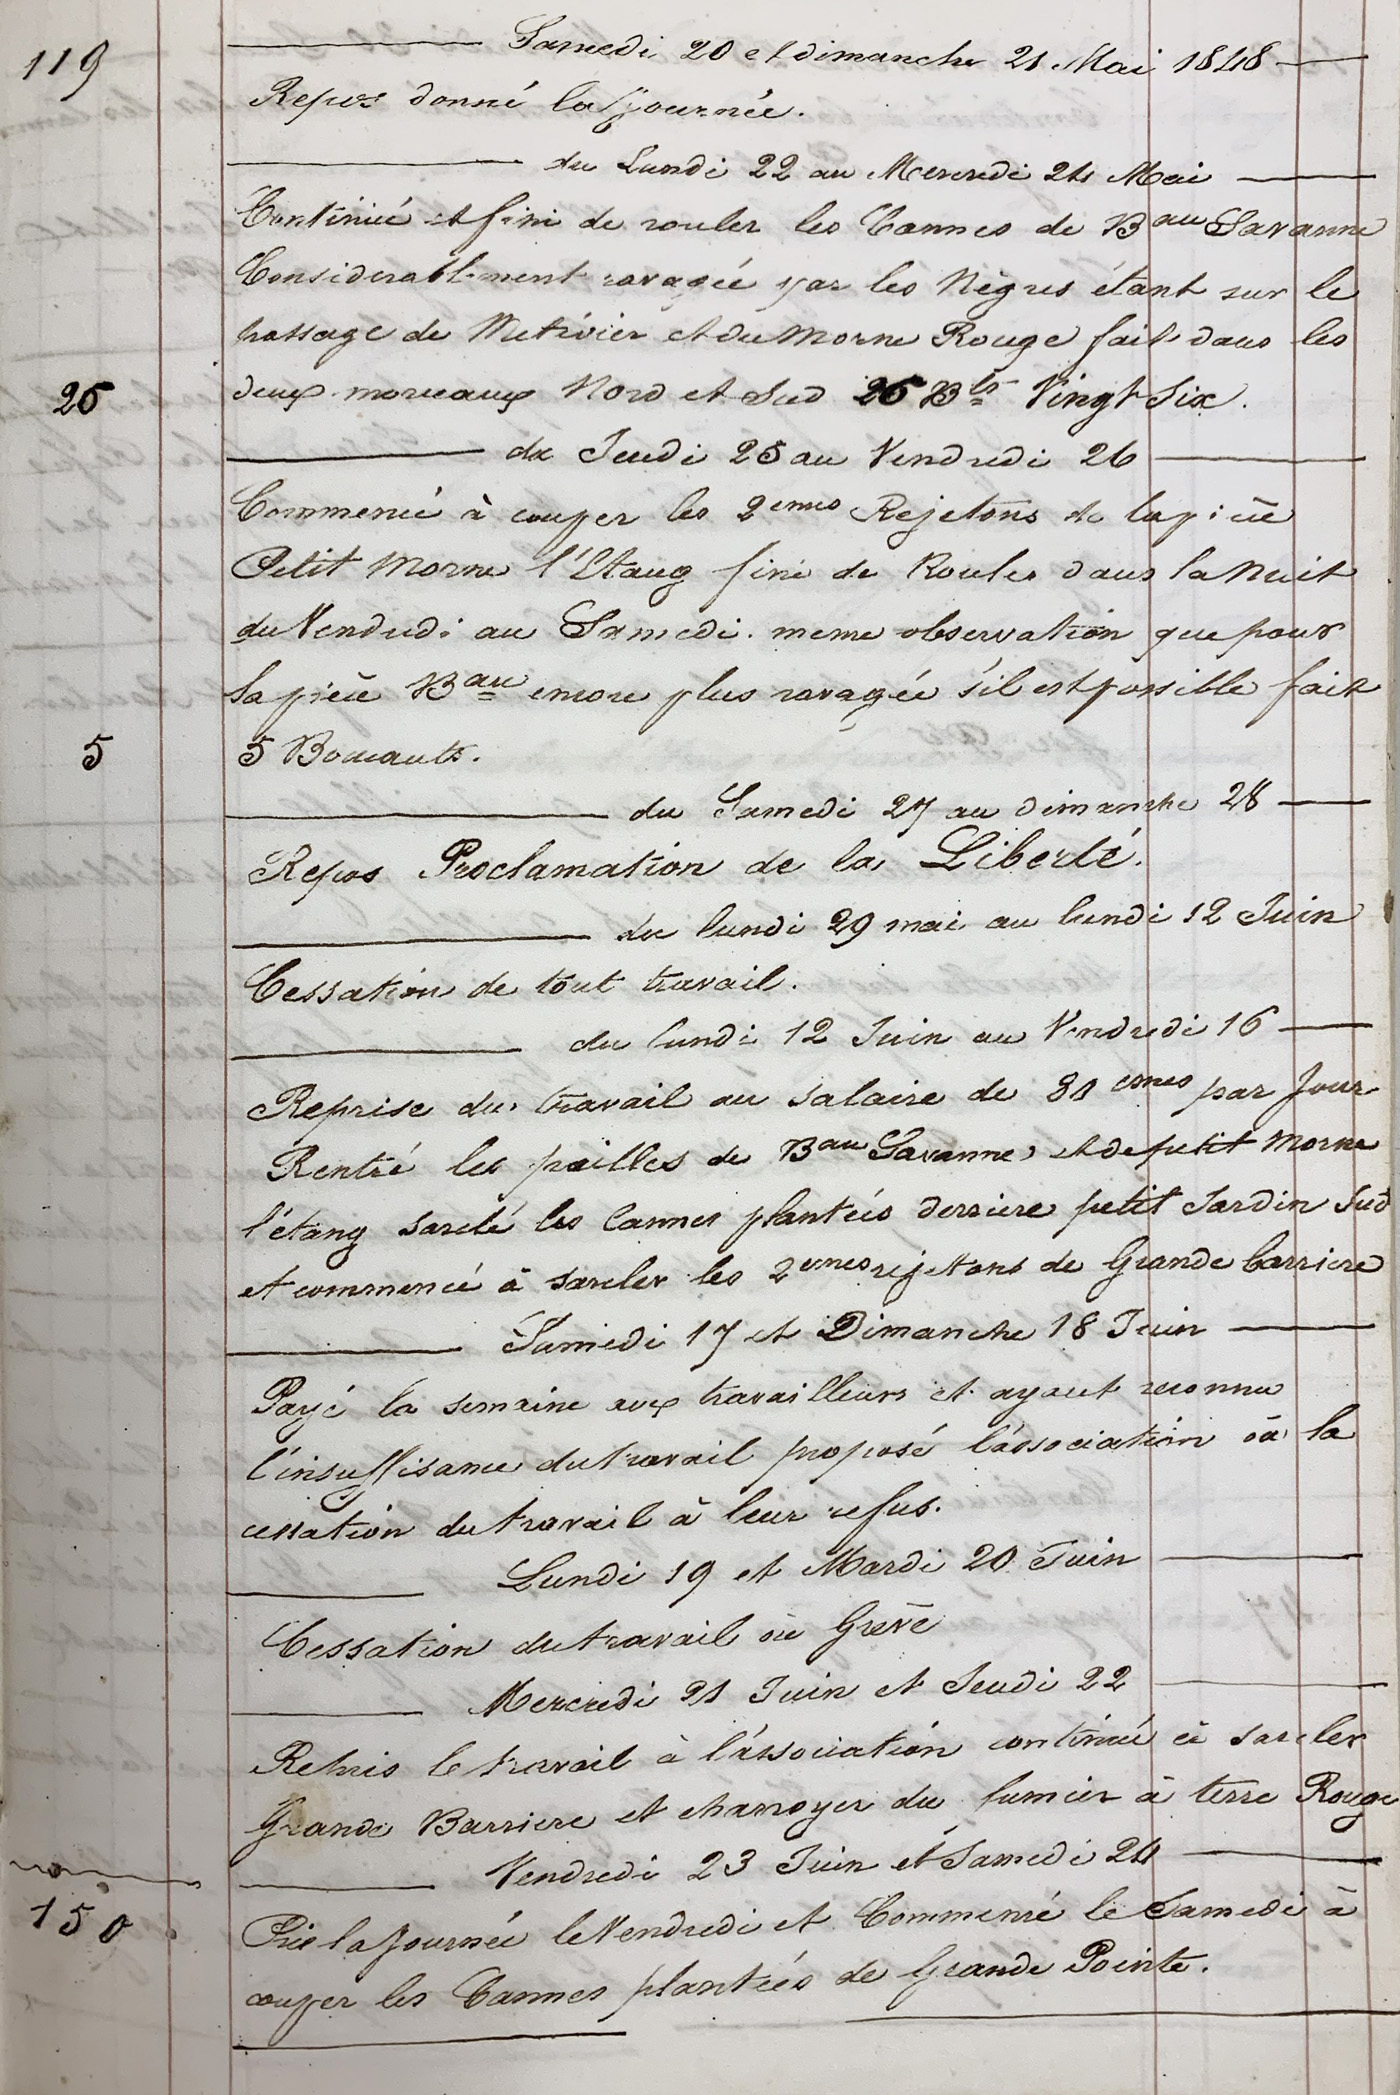 119
Samedi 20 et dimanche 21 Mai 1848
Repos donné la journée.
du Lundi 22 au Mercredi 24 Mai
Continué et fini de rouler les Cannes de Bau Savanne
Considerablement ravagée par les Nègres étant sur le
passage de Metivier et du Morne Rouge fait dans les
26
deux morceaux Nord et Sud 26 Bts Vingt Six.
du Jeudi 25 au Vendredi 26
Commencé à couper les 2emes Rejetons de la pièce
Petit Morne l'Etang fini de Rouler dans la Nuit
du Vendredi au Samedi. meme observation que pour
la pièce Bau encore plus ravagée s'il est possible fait
5
5 Boucauts.
du Samedi 27 au dimanche 28
Repos Proclamation de la Liberté.
du lundi 29 mai au lundi 12 Juin
Cessation de tout travail.
du lundi 12 Juin au Vendredi 16
Reprise du travail au salaire de par Jour
Rentré les pailles de Bau Savanne et de petit Morne
l'étang sarclé les Cannes plantées derriere petit Jardin Sud
et commencé à sarcler les 2emes rejetons de Grande barriere
Samedi 17 et Dimanche 18 Juin
Payé la semaine aux travailleurs et ayant reconnu
l'insuffisance du travail proposé l'association où la
cessation du travail à leur refus.
Lundi 19 et Mardi 20 Juin
Cessation du travail où Grève
Mercredi 21 Juin et Jeudi 22
Repris le travail à l'association continué à sarcler
Grande Barriere et charroyer du fumier à terre Rouge
Vendredi 23 Juin et Samedi 24
150
Pris la Journée le Vendredi et Commencé le Samedi à
couper les Cannes plantées de Grande Pointe.